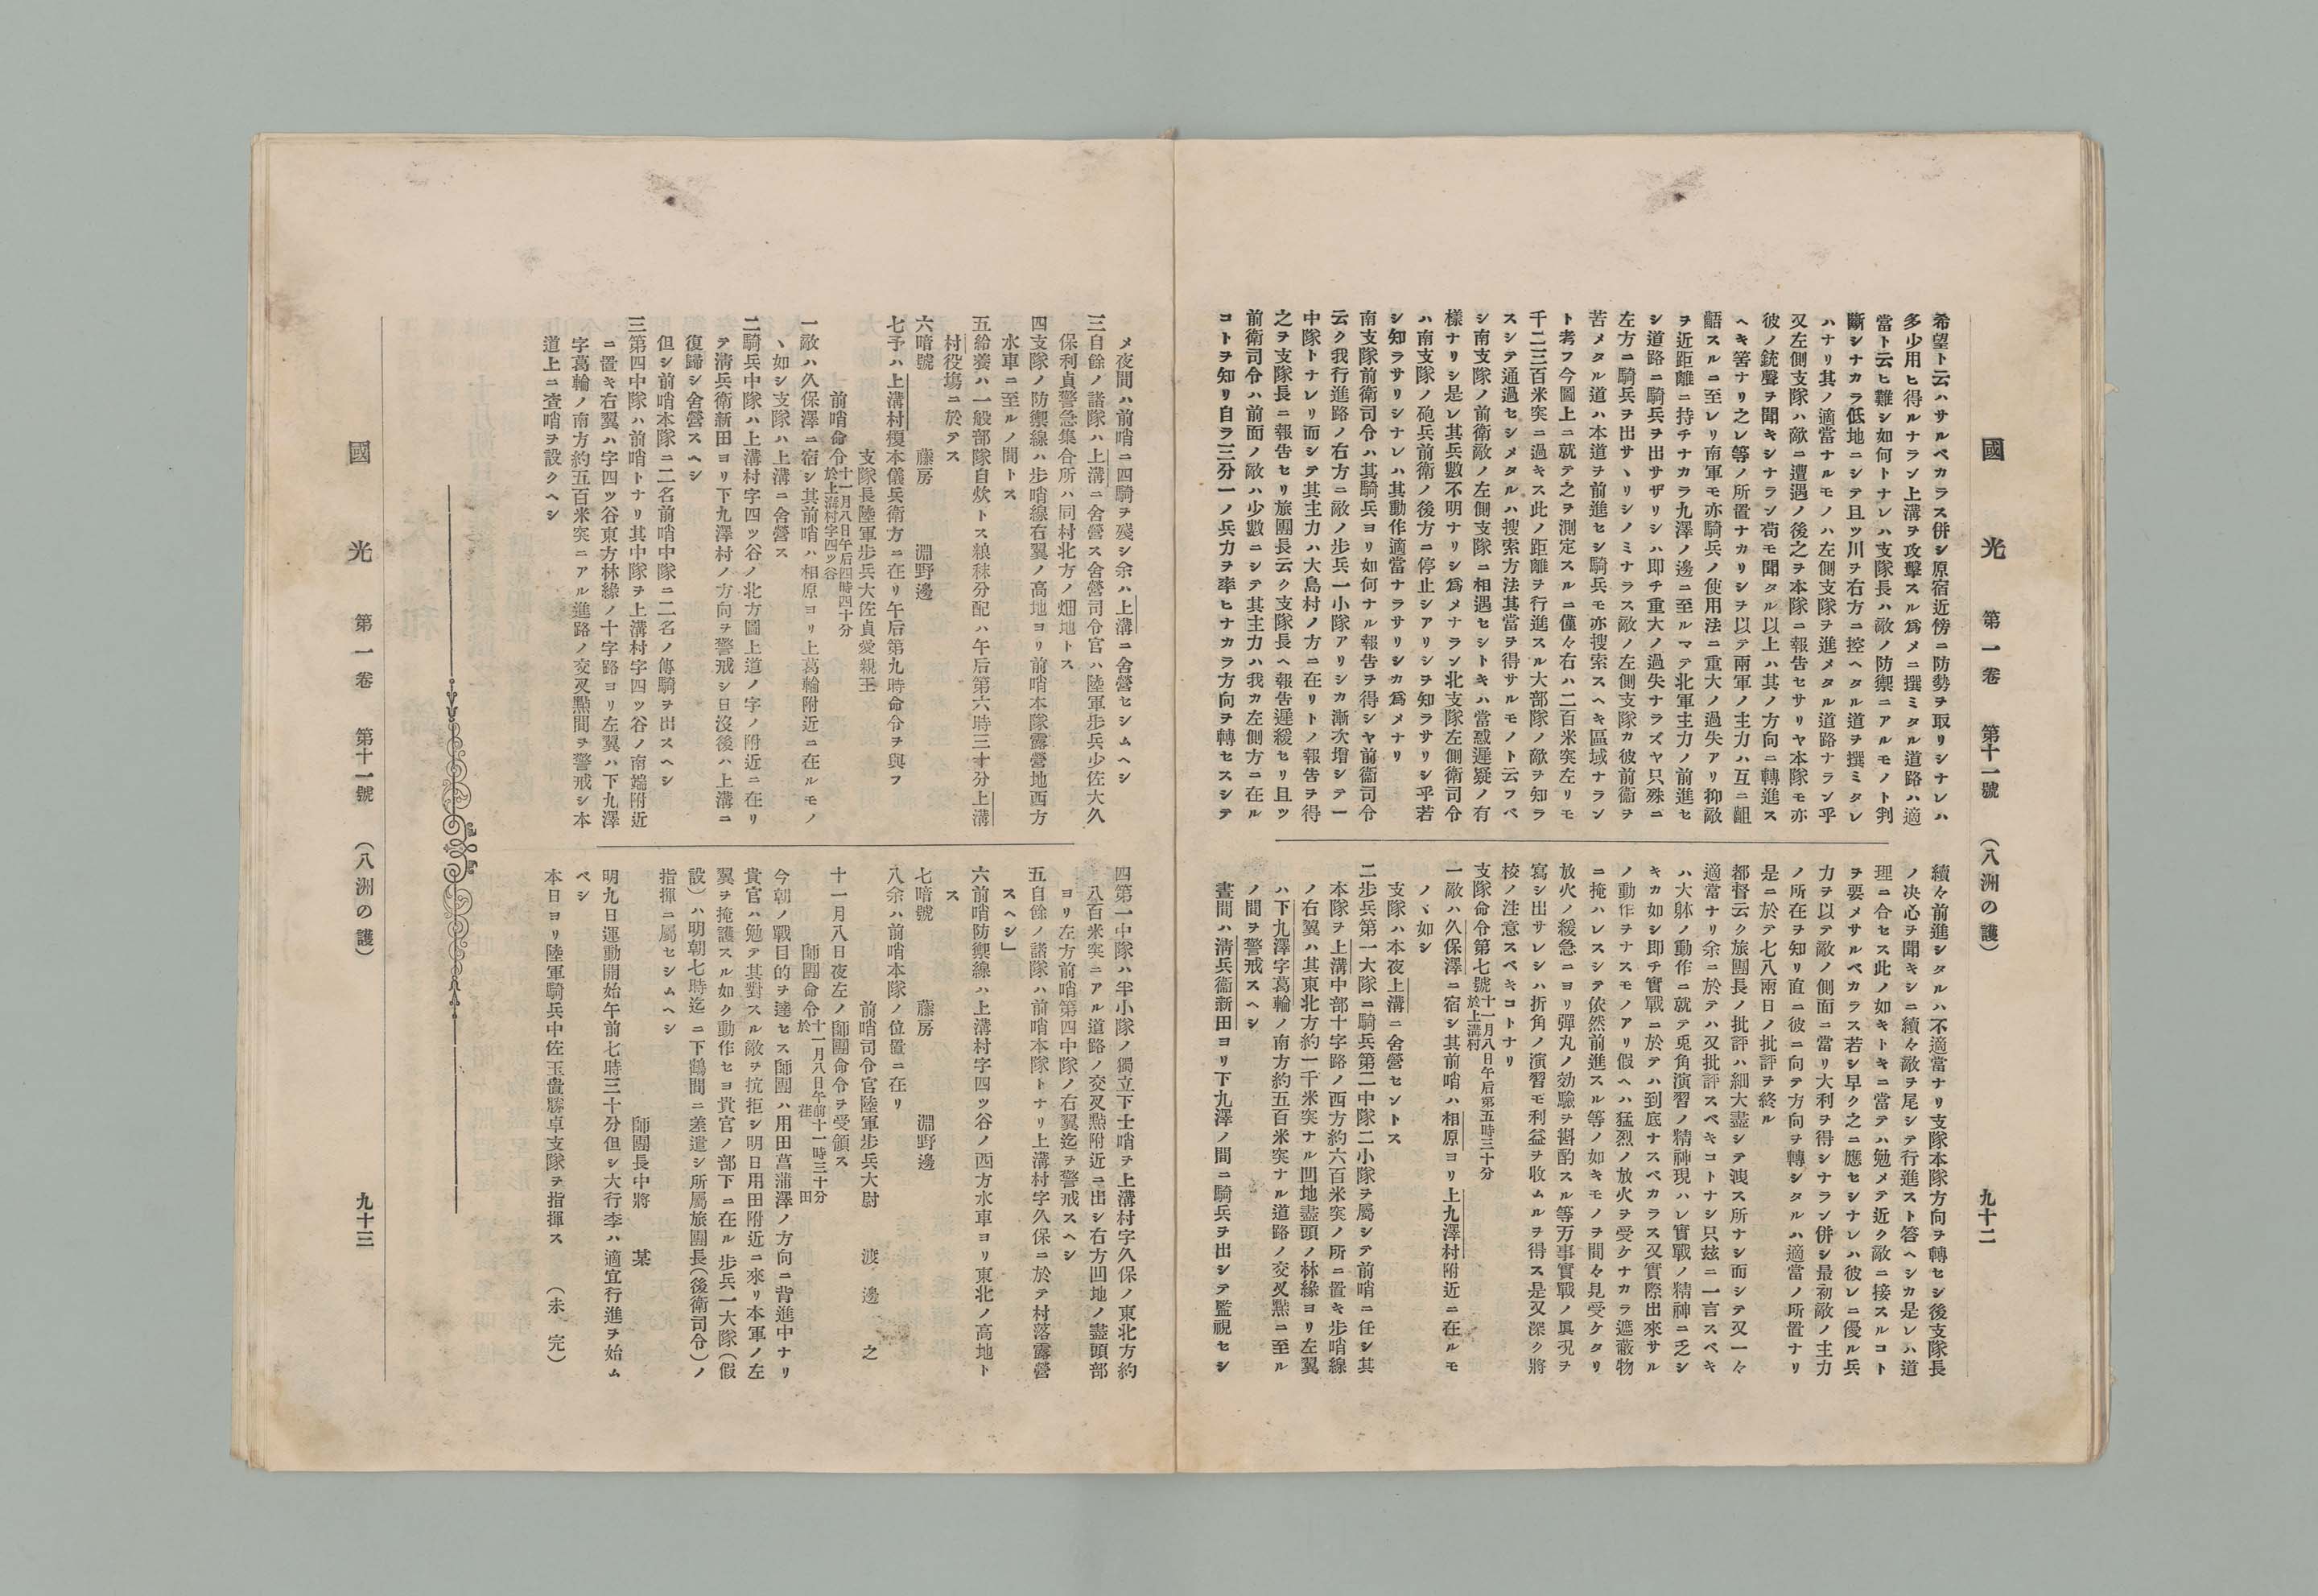 國光 第一卷 第十一號 (八洲の護) 九十二
希望ト云ハサルベカラス併シ原宿近傍ニ防勢ヲ取リシナレハ
多少用ヒ得ルナラン上溝ヲ攻擊スル爲メニ撰ミタル道路ハ適
當ト云ヒ難シ如何トナレハ支隊長ハ敵ノ防禦ニアルモノト判
斷シナカラ低地ニシテ且ツ川ヲ右方ニ控ヘタル道ヲ撰ミタレ
ハナリ其ノ適當ナルモノハ左側支隊ヲ進メタル道路ナラン乎
又左側支隊ハ敵ニ遭遇ノ後之ヲ本隊ニ報告セサリヤ本隊モ亦
彼ノ銃聲ヲ聞キシナラン苟モ聞タル以上ハ其ノ方向ニ轉進ス
ヘキ筈ナリ之レ等ノ所置ナカリシヲ以テ兩軍ノ主力ハ互ニ齟
齬スルニ至レリ南軍モ亦騎兵ノ使用法ニ重大ノ過失アリ抑敵
ヲ近距離ニ持チナカラ九澤ノ邊ニ至ルマテ北軍主力ノ前進セ
シ道路ニ騎兵ヲ出サザリシハ即チ重大ノ過失ナラズヤ只殊ニ
左方ニ騎兵ヲ出サヽリシノミナラス敵ノ左側支隊カ彼前衞ヲ
苦メタル道ハ本道ヲ前進セシ騎兵モ亦搜索スヘキ區域ナラン
ト考フ今圖上ニ就テ之ヲ測定スルニ僅々右ハ二百米突左リモ
千二三百米突ニ過キス此ノ距離ヲ行進スル大部隊ノ敵ヲ知ラ
スシテ通過セシメタルハ搜索方法其當ヲ得サルモノト云フベ
シ南支隊ノ前衞敵ノ左側支隊ニ相遇セシトキハ當惑遲疑ノ有
樣ナリシ是レ其兵數不明ナリシ爲メナラン北支隊左側衞司令
ハ南支隊ノ砲兵前衞ノ後方ニ停止シアリシヲ知ラサリシ乎若
シ知ラサリシナレハ其動作適當ナラサリシカ爲メナリ
南支隊前衞司令ハ其騎兵ヨリ如何ナル報告ヲ得シヤ前衞司令
云ク我行進路ノ右方ニ敵ノ步兵一小隊アリシカ漸次增シテ一
中隊トナレリ而シテ其主力ハ大島村ノ方ニ在リトノ報告ヲ得
之ヲ支隊長ニ報告セリ旅團長云ク支隊長ヘ報告遲緩セリ且ツ
前衞司令ハ前面ノ敵ハ少數ニシテ其主力ハ我カ左側方ニ在ル
コトヲ知リ自ラ三分一ノ兵力ヲ率ヒナカラ方向ヲ轉セスシテ
續々前進シタルハ不適當ナリ支隊本隊方向ヲ轉セシ後支隊長
ノ決心ヲ聞キシニ續々敵ヲ尾シテ行進スト答ヘシカ是レハ道
理ニ合セス此ノ如キトキニ當テハ勉メテ近ク敵ニ接スルコト
ヲ要メサルベカラス若シ早ク之ニ應セシナレハ彼レニ優ル兵
力ヲ以テ敵ノ側面ニ當リ大利ヲ得シナラン併シ最初敵ノ主力
ノ所在ヲ知リ直ニ彼ニ向テ方向ヲ轉シタルハ適當ノ所置ナリ
是ニ於テ七八兩日ノ批評ヲ終ル
都督云ク旅團長ノ批評ハ細大盡シテ洩ス所ナシ而シテ又一々
適當ナリ余ニ於テハ又批評スベキコトナシ只玆ニ一言スベキ
ハ大躰ノ動作ニ就テ兎角演習ノ精神現ハレ實戰ノ精神ニ乏シ
キカ如シ即チ實戰ニ於テハ到底ナスベカラス又實際出來サル
ノ動作ヲナスモノアリ假ヘハ猛烈ノ放火ヲ受ケナカラ遮蔽物
ニ掩ハレスシテ依然前進スル等ノ如キモノヲ間々見受ケタリ
放火ノ緩急ニヨリ彈丸ノ効驗ヲ斟酌スル等万事實戰ノ眞況ヲ
寫シ出サレシハ折角ノ演習モ利益ヲ收ムルヲ得ス是又深ク將
校ノ注意スベキコトナリ
支隊命令第七號 十一月八日午后第五時三十分 於上溝村
一敵ハ久保澤ニ宿シ其前哨ハ相原ヨリ上九澤村附近ニ在ルモ
ノヽ如シ
支隊ハ本夜上溝ニ舍營セントス
二步兵第一大隊ニ騎兵第二中隊二小隊ヲ屬シテ前哨ニ任シ其
本隊ヲ上溝中部十字路ノ西方約六百米突ノ所ニ置キ步哨線
ノ右翼ハ其東北方約一千米突ナル凹地盡頭ノ林緣ヨリ左翼
ハ下九澤字葛輪ノ南方約五百米突ナル道路ノ交叉點ニ至ル
ノ間ヲ警戒スヘシ
晝間ハ淸兵衞新田ヨリ下九澤ノ間ニ騎兵ヲ出シテ監視セシ
メ夜間ハ前哨ニ四騎ヲ殘シ余ハ上溝ニ舍營セシムヘシ
三自餘ノ諸隊ハ上溝ニ舍營ス舍營司令官ハ陸軍步兵少佐大久
保利貞警急集合所ハ同村北方ノ畑地トス
四支隊ノ防禦線ハ步哨線右翼ノ高地ヨリ前哨本隊露營地西方
水車ニ至ルノ間トス
五給養ハ一般部隊自炊トス粮秣分配ハ午后第六時三十分上溝
村役場ニ於テス
六暗號 藤房 淵野邊
七予ハ上溝村榎本儀兵衛方ニ在リ午后第九時命令ヲ與フ
支隊長陸軍步兵大佐貞愛親王
前哨命令 十一月八日午后四時四十分 於上溝村字四ツ谷
一敵ハ久保澤ニ宿シ其前哨ハ相原ヨリ上葛輪附近ニ在ルモノ
ヽ如シ支隊ハ上溝ニ舍營ス
二騎兵中隊ハ上溝村字四ツ谷ノ北方圖上道ノ字ノ附近ニ在リ
テ淸兵衛新田ヨリ下九澤村ノ方向ヲ警戒シ日沒後ハ上溝ニ
復歸シ舍營スヘシ
但シ前哨本隊ニ二名前哨中隊ニ二名ノ傳騎ヲ出スヘシ
三第四中隊ハ前哨トナリ其中隊ヲ上溝村字四ツ谷ノ南端附近
ニ置キ右翼ハ字四ツ谷東方林緣ノ十字路ヨリ左翼ハ下九澤
字葛輪ノ南方約五百米突ニアル進路ノ交叉點間ヲ警戒シ本
道上ニ査哨ヲ設クヘシ
四第一中隊ハ半小隊ノ獨立下士哨ヲ上溝村字久保ノ東北方約
八百米突ニアル道路ノ交叉點附近ニ出シ右方凹地ノ盡頭部
ヨリ左方前哨第四中隊ノ右翼迄ヲ警戒スヘシ
五自餘ノ諸隊ハ前哨本隊トナリ上溝村字久保ニ於テ村落露營
スヘシ」
六前哨防禦線ハ上溝村字四ツ谷ノ西方水車ヨリ東北ノ高地ト
ス
七暗號 藤房 淵野邊
八余ハ前哨本隊ノ位置ニ在リ
前哨司令官陸軍步兵大尉 渡邊 之
十一月八日夜左ノ師團命令ヲ受領ス
師團命令 十一月八日午前十一時三十分 於荏田
今朝ノ戰目的ヲ達セス師團ハ用田菖蒲澤ノ方向ニ背進中ナリ
貴官ハ勉テ其對スル敵ヲ抗拒シ明日用田附近ニ來リ本軍ノ左
翼ヲ掩護スル如ク動作セヨ貴官ノ部下ニ在ル步兵一大隊(假
設)ハ明朝七時迄ニ下鶴間ニ差遣シ所屬旅團長(後衞司令)ノ
指揮ニ屬セシムヘシ
師團長中將 某
明九日運動開始午前七時三十分但シ大行李ハ適宜行進ヲ始ム
ベシ
本日ヨリ陸軍騎兵中佐玉置勝卓支隊ヲ指揮ス (未完)
國光 第一卷 第十一號 (八洲の護) 九十三